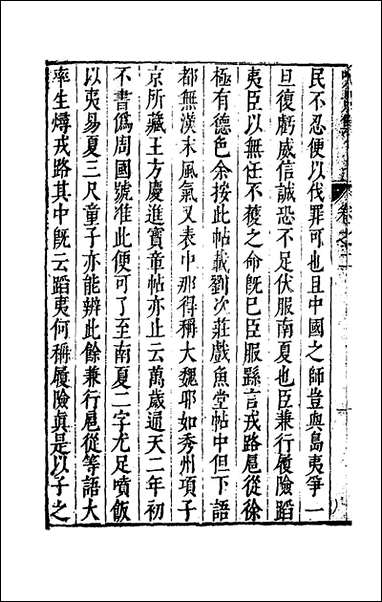 民不忍便以伐罪可也且中國之師豈與島夷爭一
旦復虧威信誠恐不足伏服南夏也臣兼行履險蹈
夷臣以無任不獲之命旣已臣服繇言戎路扈從徐
極有德色余按此帖載劉次莊戲魚堂帖中但下語
都無漢末風氣又表中那得稱大魏耶如秀州項子
京所藏王方慶進寶章帖亦止云萬歲通天二年初
不書僞周國號准此便可了至南夏二字尤足噴飯
以夷易夏三尺童子亦能辨此餘兼行扈從等語大
率生燖戎路其中旣云蹈夷何稱履險眞是以子之